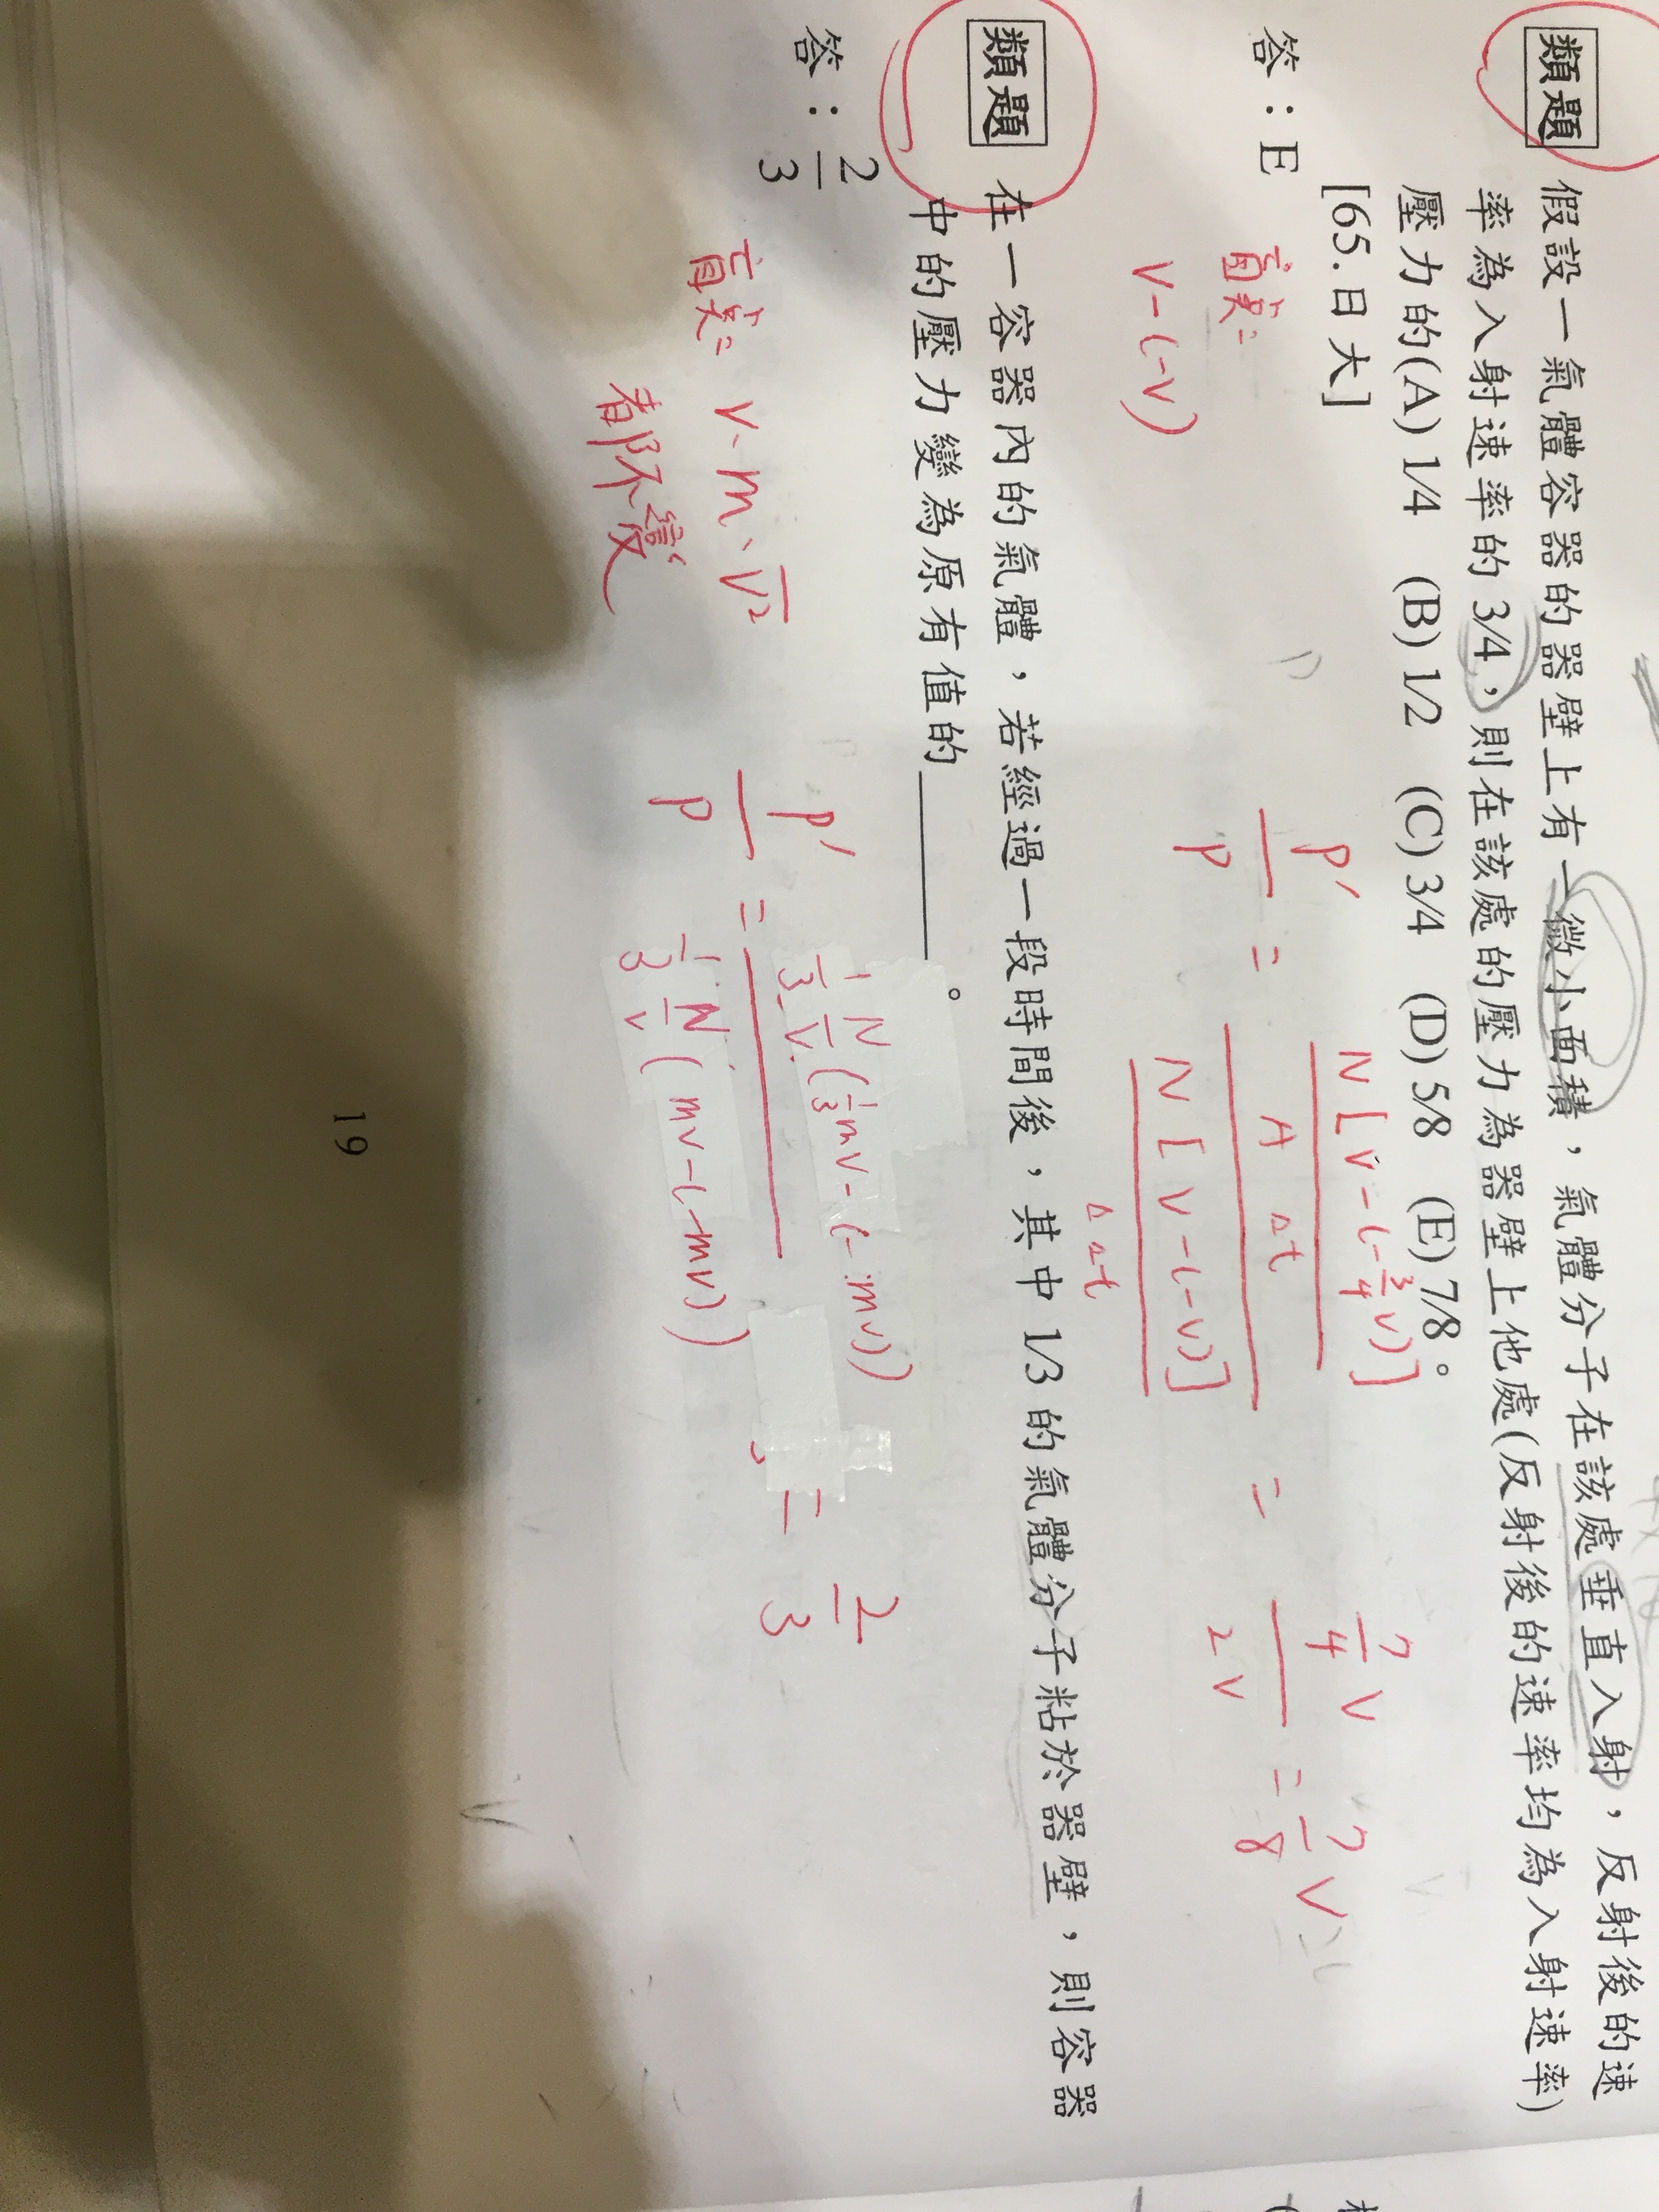 類題 假設一氣體容器的器壁上有一微小面積，氣體分子在該處垂直入射，反射後的速
率為入射速率的 3/4，則在該處的壓力為器壁上他處(反射後的速率均為入射速率)
壓力的(A) 1/4 (B) 1/2 (C) 3/4 (D) 5/8 (E) 7/8。
[65.日大]
答：E
盲點：
V-(-V)
P'/P = N[V-(-3/4 V)] / A Δt / N[V-(-V)] / Δt = 7/4 V / 2V = 7/8 V
類題 在一容器內的氣體，若經過一段時間後，其中 1/3 的氣體分子粘於器壁，則容器
中的壓力變為原有值的________。
答：2/3
盲點： V、m、V²
都不變
P'/P = 1/3 N/V (1/3 mV-(-mV)) / 1/3 N/V (mV-(-mV)) = 2/3
19